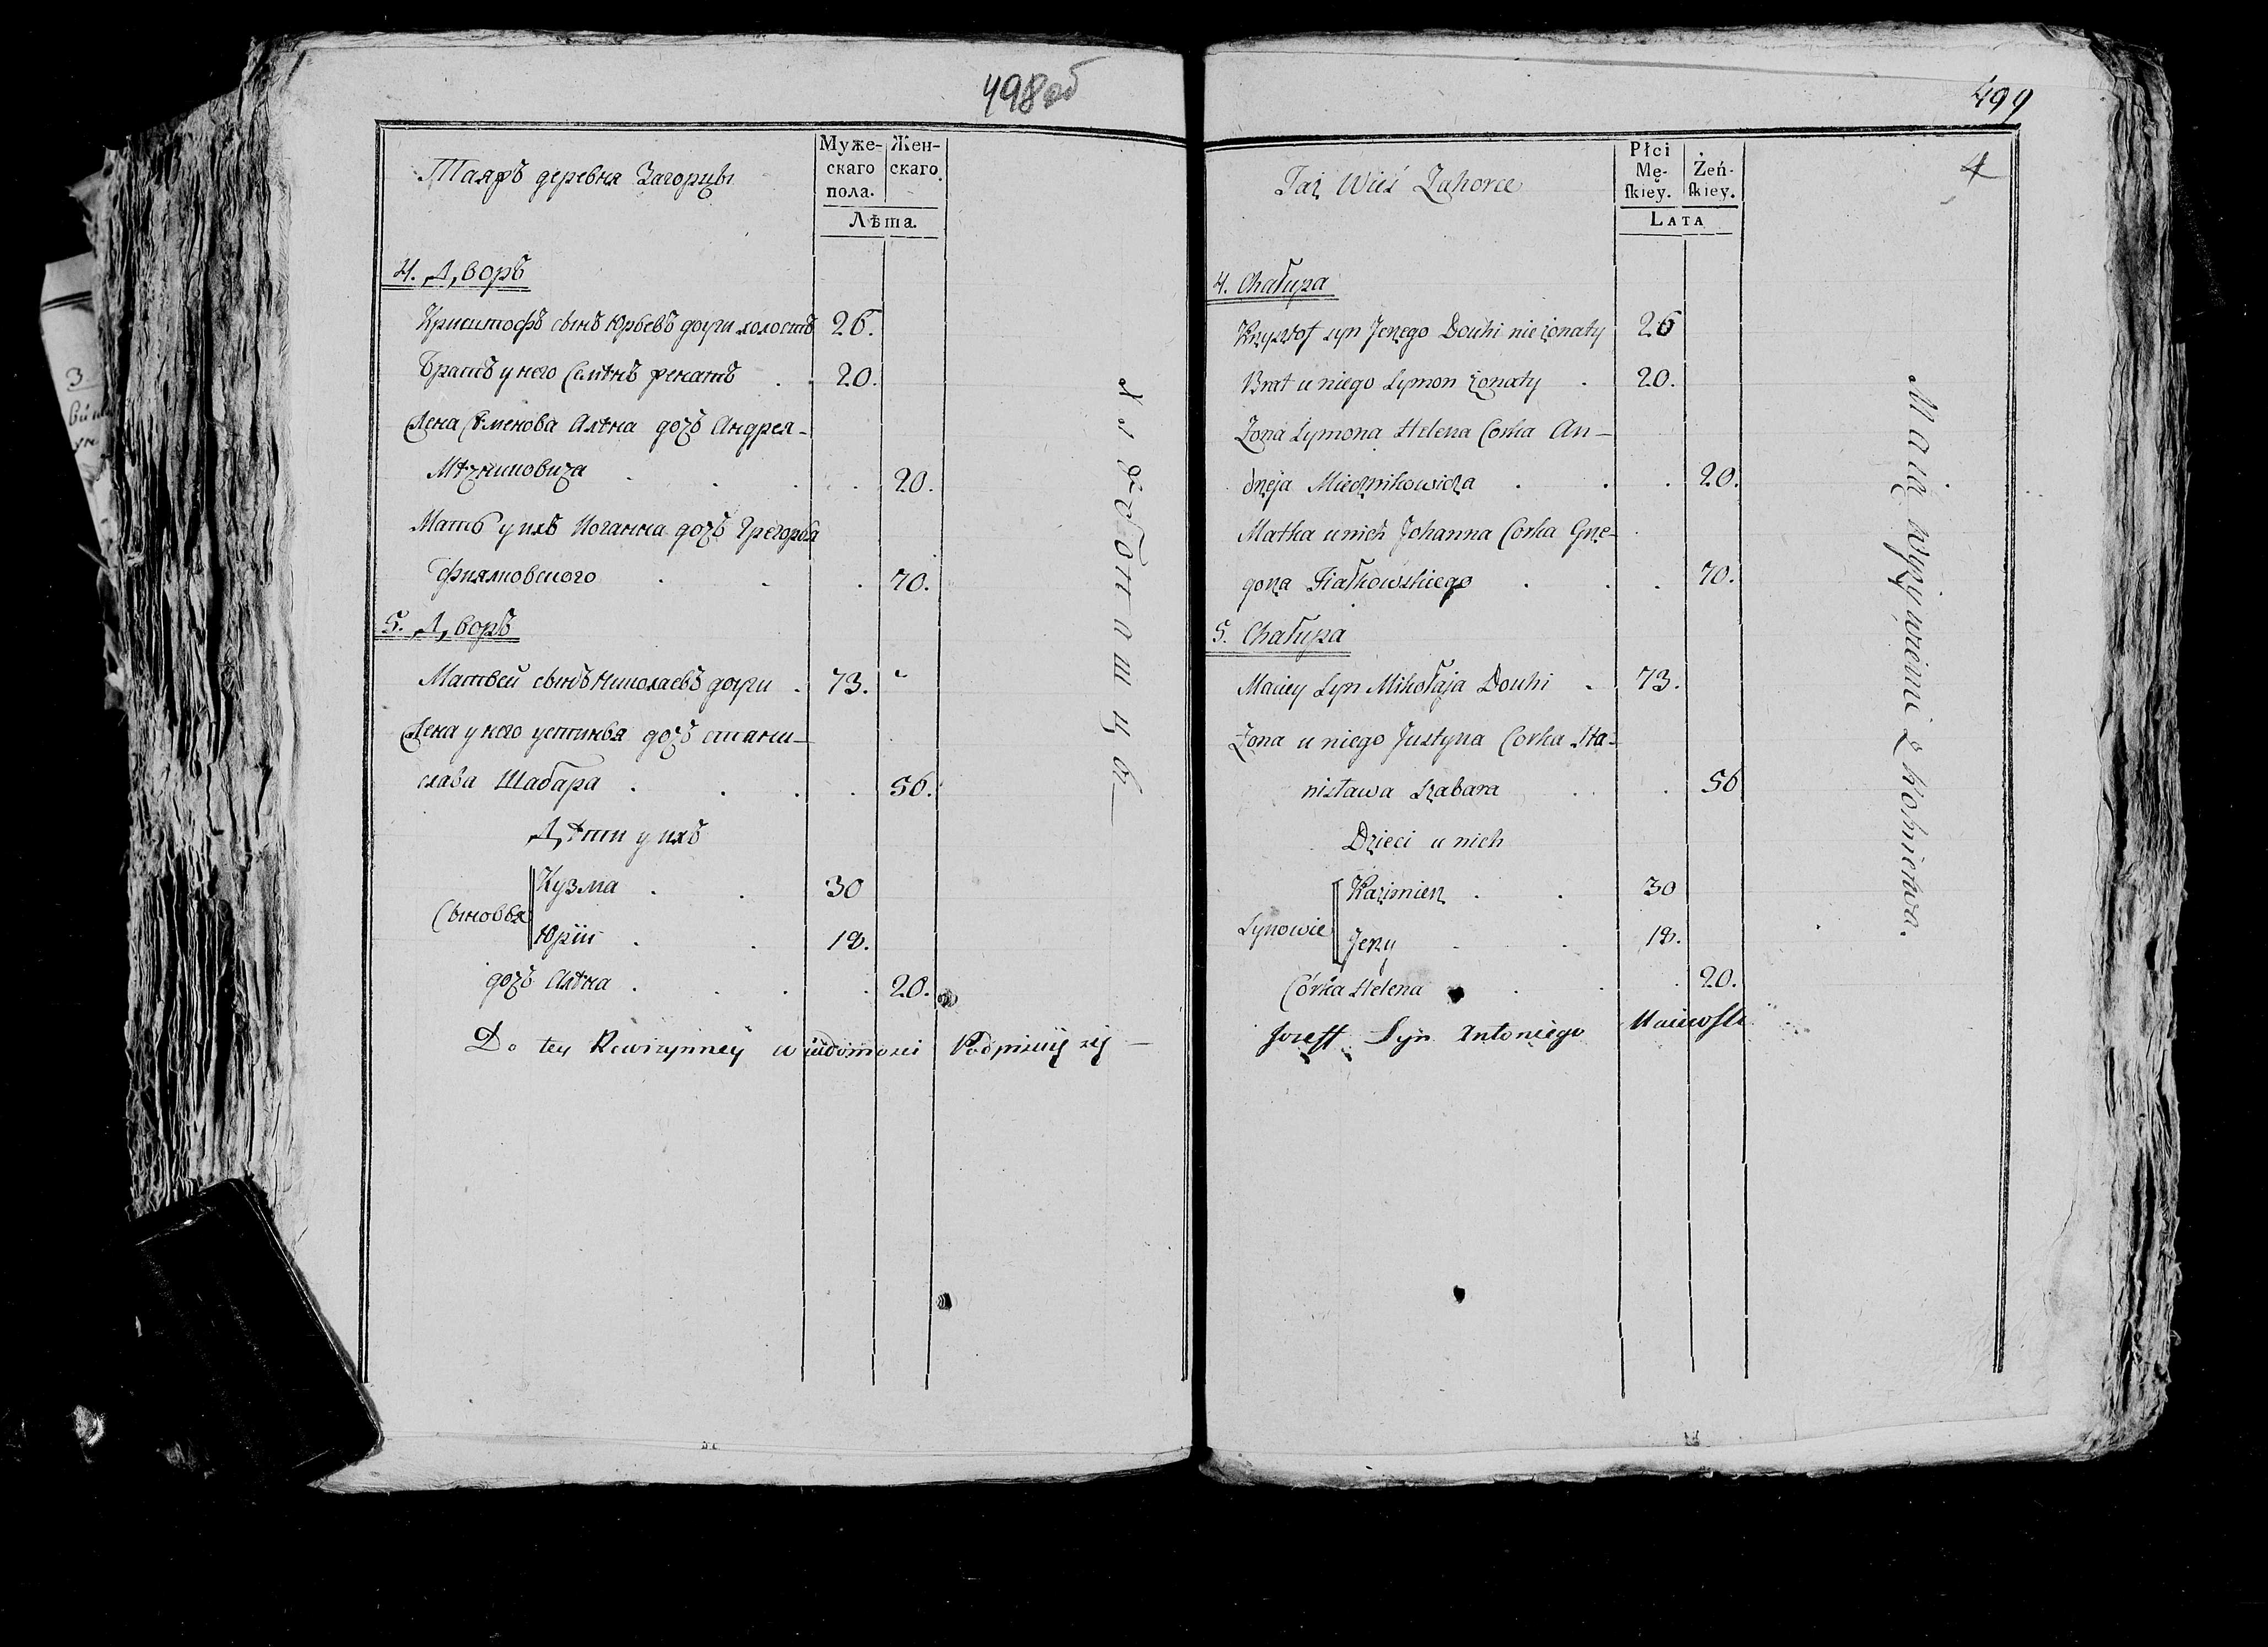 498об
Таяжъ деревня Загорцы
Муже-
скаго
пола.
Жен-
скаго.
Лѣта.
4. Дворъ
Криштофъ сынъ Юрьевъ доуги холостъ 26.
Братъ у него Семѣнъ женатъ . 20.
Жена Сѣменова Алѣна дочь Андрея-
Мѣчниковича . . . . 20.
Мать у ихъ Иоганна дочь Грегорья
Фиялковского . . . 70.
5. Дворъ
Матвей сынъ Николаевъ доуги . 73.
Жена у него устинья дочь стани-
слава Шабара . . . . 56.
Дѣти у ихъ
Сыновья
Кузма . . 30
Юрiи . . 18.
дочь Алѣна . . . . 20.
Do tey Rewizynney wiadomosci Podpisuię się —
499
4
Taż Wieś Zahorce
Płci
Mę-
ſkiey.
Żeń-
ſkiey.
LATA
4. Chałupa
Krzysztof syn Jerzego Douhi nie żonaty 26
Brat u niego Symon żonaty . 20.
Żona Symona Helena Corka An-
drzeja Miecznikowicza . . . 20.
Matka u nich Johanna Corka Grze-
gorza Fiałkowskiego . . . 70.
5. Chałupa
Maciey Syn Mikołaja Douhi . 73.
Żona u niego Justyna Corka Sta-
nisława Szabara . . . 56
Dzieci u nich
Synowie
Kazimierz . . 30
Jerzy . . . 18.
Córka Helena . . . 20.
Jozeff Syn Antoniego
Maią wyżywieni z Rolnictwa.